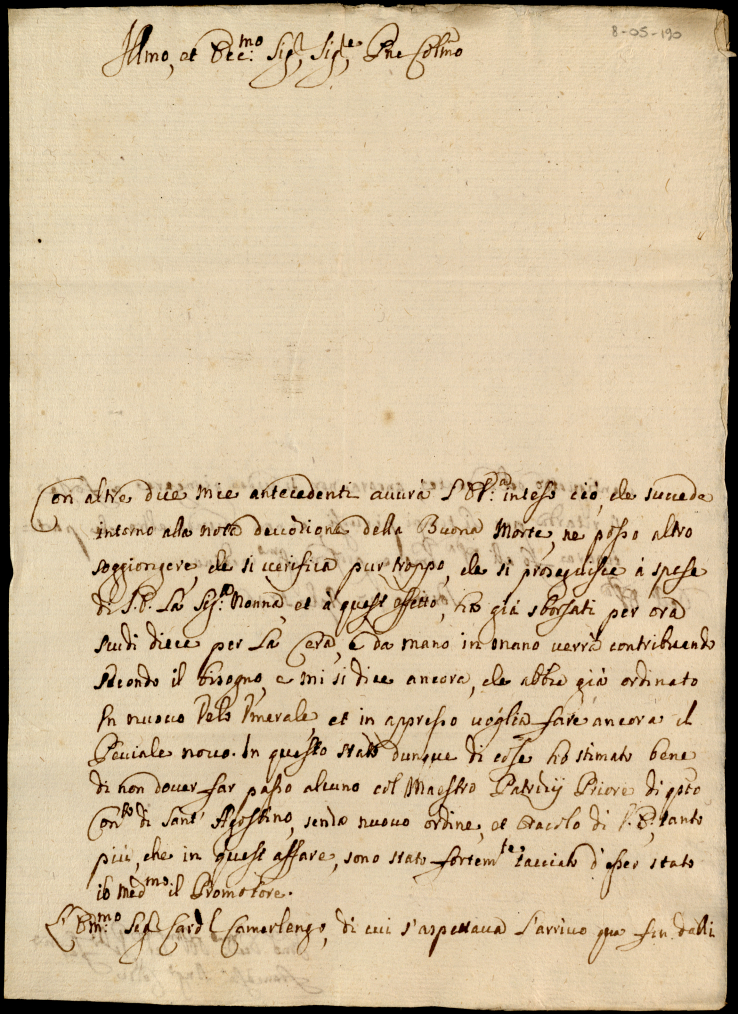 8-05-190
Illmo, et Ecc:mo Sig.r Sig.re Pne Colmo
Con altre due mie antecedenti avurà S. inteso ciò, che succede
intorno alla nota devozione della Buona Morte, ne posso altro
soggiongere, che si verifica pur troppo, che si proseguisce à spese
di S.E. la Sig.ra Nonna, et à quest'effetto, hà già sborsati per ora
scudi diece per la Cera, e da mano in mano verrà contribuendo
secondo il bisogno, e mi si dice ancora, che abbia già ordinato
un nuovo Velo Umerale, et in appresso voglia fare ancora il
Peviale novo. In questo stato dunque di cose hò stimato bene
di non dover far passo alcuno col Maestro Patrizij Priore di qsto
Con.to di Sant'Agostino, senza nuovo ordine, et oracolo di S.E., tanto
più, che in quest'affare, sono stato fortem.te tacciato d'esser stato
io med.mo il Promotore.
L'Em:mo Sig.r Card.l Camerlengo, di cui s'aspettava l'arrivo qua fin dalli